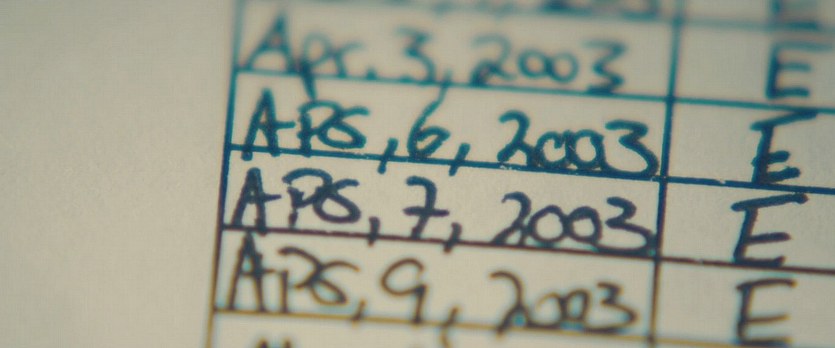 Apr. 3, 2003 E
APS, 6, 2003 E
APS, 7, 2003 E
APS, 9, 2003 E